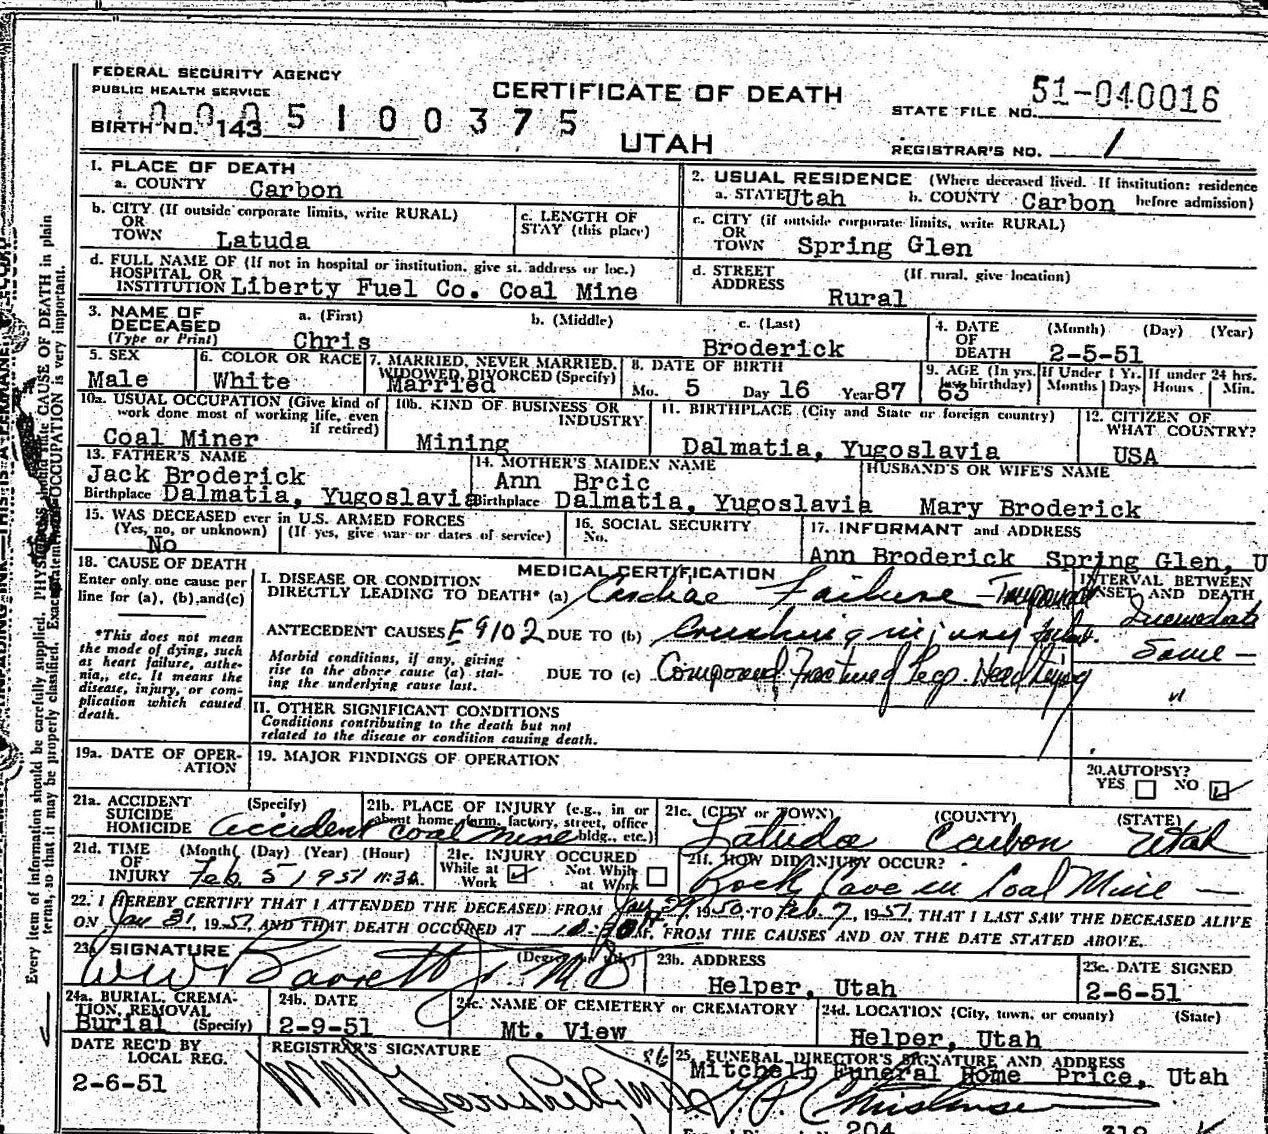 FEDERAL SECURITY AGENCY
PUBLIC HEALTH SERVICE
CERTIFICATE OF DEATH
UTAH
STATE FILE NO. 51-040016
BIRTH NO. 143
0005100375
REGISTRAR'S NO. 1
1. PLACE OF DEATH
a. COUNTY Carbon
2. USUAL RESIDENCE (Where deceased lived. If institution: residence before admission)
a. STATE Utah b. COUNTY Carbon
b. CITY (If outside corporate limits, write RURAL) OR TOWN Latuda
c. LENGTH OF STAY (this place)
c. CITY (if outside corporate limits, write RURAL) OR TOWN Spring Glen
d. FULL NAME OF (If not in hospital or institution, give st. address or loc.) HOSPITAL OR INSTITUTION Liberty Fuel Co. Coal Mine
d. STREET ADDRESS (If rural, give location) Rural
3. NAME OF DECEASED (Type or Print) a. (First) Chris b. (Middle) c. (Last) Broderick
4. DATE OF DEATH (Month) (Day) (Year) 2-5-51
5. SEX Male
6. COLOR OR RACE White
7. MARRIED, NEVER MARRIED, WIDOWED, DIVORCED (Specify) Married
8. DATE OF BIRTH Mo. 5 Day 16 Year 87
9. AGE (In yrs. last birthday) 63 If Under 1 Yr. Months Days If under 24 hrs. Hours Min.
10a. USUAL OCCUPATION (Give kind of work done most of working life, even if retired) Coal Miner
10b. KIND OF BUSINESS OR INDUSTRY Mining
11. BIRTHPLACE (City and State or foreign country) Dalmatia, Yugoslavia
12. CITIZEN OF WHAT COUNTRY? USA
13. FATHER'S NAME Jack Broderick
Birthplace Dalmatia, Yugoslavia
14. MOTHER'S MAIDEN NAME Ann Brcic
Birthplace Dalmatia, Yugoslavia
HUSBAND'S OR WIFE'S NAME Mary Broderick
15. WAS DECEASED ever in U.S. ARMED FORCES (Yes, no, or unknown) No (If yes, give war or dates of service)
16. SOCIAL SECURITY No.
17. INFORMANT and ADDRESS Ann Broderick Spring Glen, U
18. CAUSE OF DEATH
Enter only one cause per line for (a), (b), and (c)
*This does not mean the mode of dying, such as heart failure, asthenia, etc. It means the disease, injury, or complication which caused death.
MEDICAL CERTIFICATION
INTERVAL BETWEEN ONSET AND DEATH
I. DISEASE OR CONDITION DIRECTLY LEADING TO DEATH* (a) Cardiac Failure Immediate
ANTECEDENT CAUSES E9102 DUE TO (b) Crushing injury Same
Morbid conditions, if any, giving rise to the above cause (a) stating the underlying cause last.
DUE TO (c) Fractured Legs. Head Injury "
II. OTHER SIGNIFICANT CONDITIONS
Conditions contributing to the death but not related to the disease or condition causing death.
19a. DATE OF OPERATION
19. MAJOR FINDINGS OF OPERATION
20. AUTOPSY? YES NO
21a. ACCIDENT SUICIDE HOMICIDE (Specify) accident
21b. PLACE OF INJURY (e.g., in or about home, farm, factory, street, office bldg., etc.) coal mine
21c. (CITY or TOWN) Latuda (COUNTY) Carbon (STATE) Utah
21d. TIME OF INJURY (Month) (Day) (Year) (Hour) Feb. 5 1951
21e. INJURY OCCURED While at Work Not While at Work
21f. HOW DID INJURY OCCUR? Rock Cave in Coal Mine
22. I HEREBY CERTIFY THAT I ATTENDED THE DECEASED FROM Jan 1950 TO Feb. 7, 1951, THAT I LAST SAW THE DECEASED ALIVE
ON Jan 31, 1951, AND THAT DEATH OCCURED AT FROM THE CAUSES AND ON THE DATE STATED ABOVE.
23a SIGNATURE W W Barrett Jr. MD
23b. ADDRESS Helper, Utah
23c. DATE SIGNED 2-6-51
24a. BURIAL, CREMATION, REMOVAL (Specify) Burial
24b. DATE 2-9-51
24c. NAME OF CEMETERY or CREMATORY Mt. View
24d. LOCATION (City, town, or county) (State) Helper, Utah
DATE REC'D BY LOCAL REG. 2-6-51
REGISTRAR'S SIGNATURE
25. FUNERAL DIRECTOR'S SIGNATURE AND ADDRESS
Mitchell Funeral Home Price, Utah
Christensen
204
Every item of information should be carefully supplied.